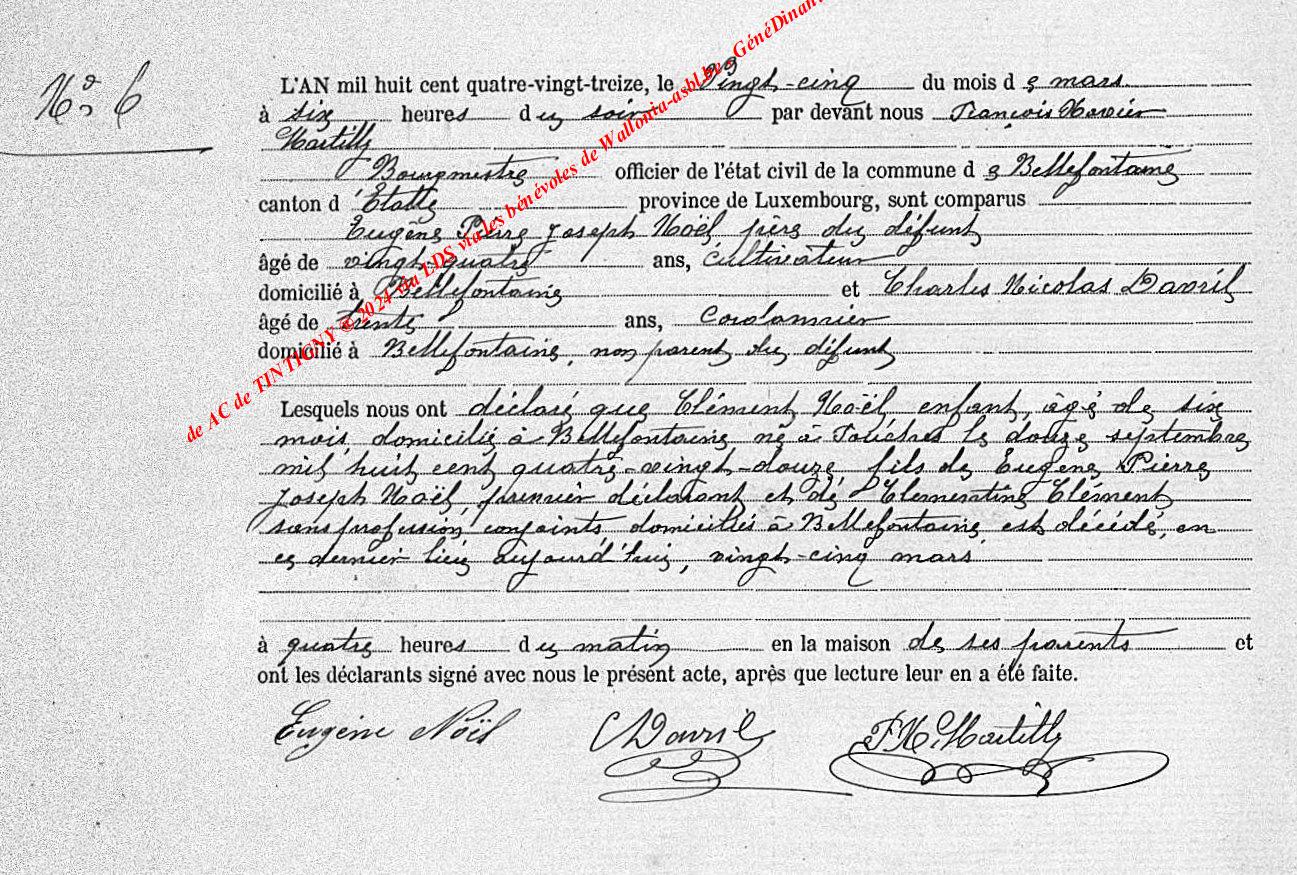 No 6
L'AN mil huit cent quatre-vingt-treize, le Vingt-cinq du mois de mars
à six heures du soir par devant nous François Xavier
Martilly
Bourgmestre officier de l'état civil de la commune de Bellefontaine
canton d'Etalle province de Luxembourg, sont comparus
Eugène Pierre Joseph Noël père du défunt
âgé de vingt-quatre ans, cultivateur
domicilié à Bellefontaine et Charles Nicolas Davril
âgé de trente ans, cordonnier
domicilié à Bellefontaine, non parent du défunt
Lesquels nous ont déclaré que Clément Noël, enfant, âgé de six
mois, domicilié à Bellefontaine né à le douze septembre
mil huit cent quatre-vingt-douze, fils de Eugène Pierre
Joseph Noël, premier déclarant et de Clementine Clément
sans profession, conjoints domiciliés à Bellefontaine est décédé, en
ce dernier lieu aujourd'hui, vingt-cinq mars
à quatre heures du matin en la maison de ses parents et
ont les déclarants signé avec nous le présent acte, après que lecture leur en a été faite.
Eugène Noël CDavril F.X. Martilly
de AC de TINTIGNY © 2024 via LDS via les bénévoles de Wallonia-asbl.be - GénéDinant